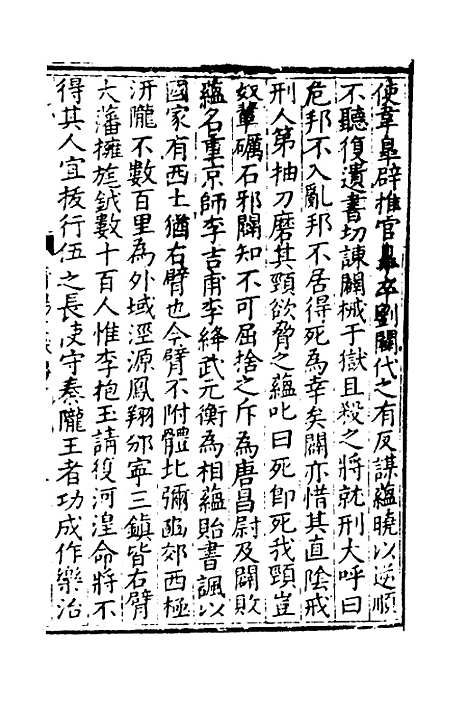 使韋皐辟推官皐卒劉闢代之有反謀蘊曉以逆順
不聽復遺書切諫闢械于獄且殺之將就刑大呼曰
危邦不入亂邦不居得死為幸矣闢亦惜其直陰戒
刑人第抽刀磨其頸欲脅之蘊叱曰死即死我頸豈
奴軰礪石邪闢知不可屈捨之斥為唐昌尉及闢敗
蘊名重京師李吉甫李絳武元衡為相蘊貽書諷以
國家有西土猶右臂也今臂不附體北彌豳郊西極
汧隴不數百里為外域涇源鳳翔邠寧三鎮皆右臂
大藩擁旄鉞數十百人惟李抱玉請復河湟命將不
得其人宜拔行伍之長使守秦隴王者功成作樂治